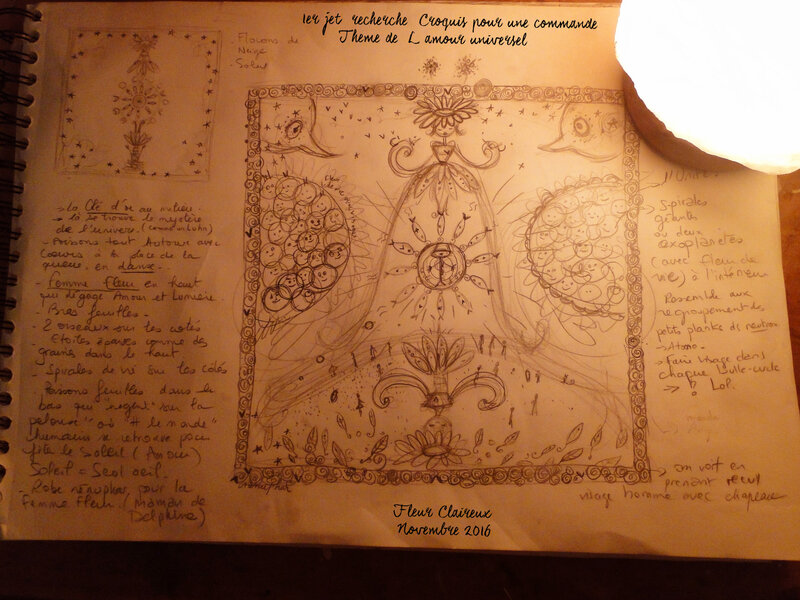 1er jet recherche Croquis pour une commande
Theme de L amour universel
- Flocons de
Neige
- Soleil
→ La Clé d'or au milieu.
→ là se trouve le mystère
de l'univers.
- Poissons tout Autour avec
Coeurs à la place de la
queue. en danse.
- Femme Fleur en haut
qui dégage Amour et Lumière.
- Bras feuilles.
- 2 oiseaux sur les cotés
- Etoiles éparses comme des
grains dans le haut
- Spirales de vie sur les cotés
Poissons feuilles dans le
bas qui nagent sur la
pelouse où # le monde
humains se retrouve pour
fête le Soleil (Amour)
Soleil = Seul oeil.
- Robe nénuphar pour la
Femme Fleur (maman de
Delphine)
→ Spirales
géantes
ou deux
exoplanètes
(avec fleur de
vie) à l'intérieur
Rassemble aux
regroupement des
petits planks de
- faire visage dans
chaque bulle-cercle
→ ? Lol.
→ on voit en
prenant recul
visage homme avec chapeau
Fleur Claireux
Novembre 2016